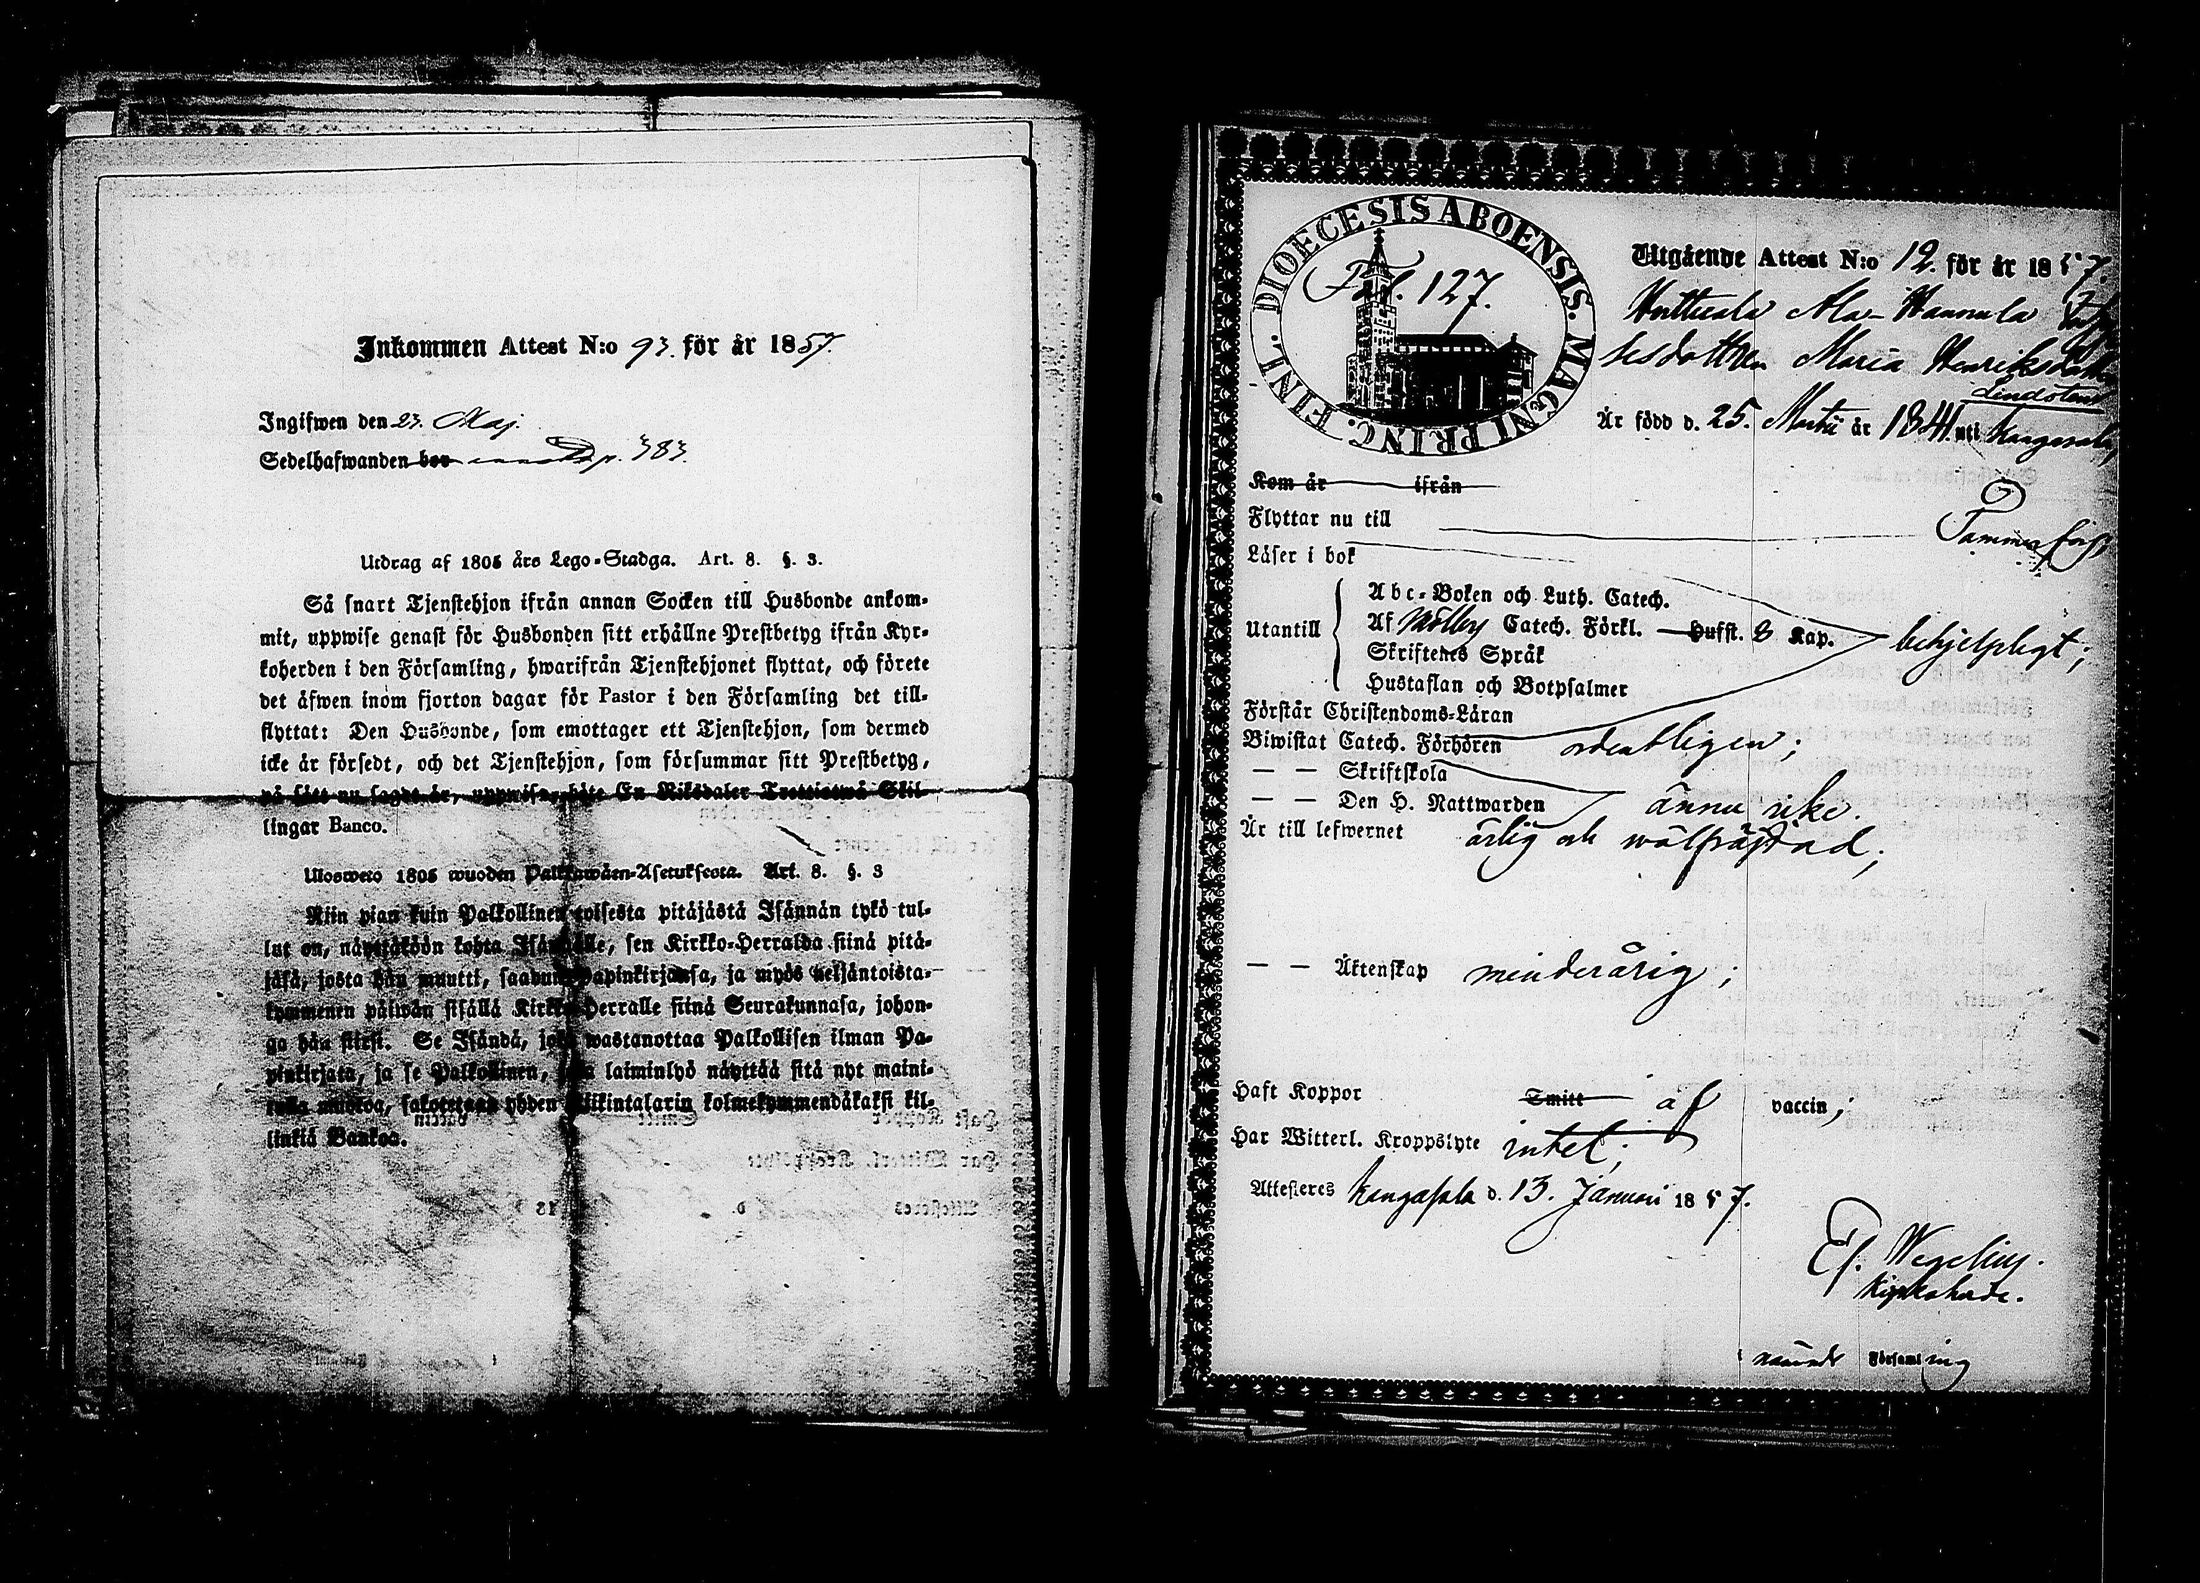 Inkommen Attest N:o 93. för år 1857.
Ingifwen den 23. Maj.
Sedelhafwanden bor p. 383.
Utdrag af 1805 års Lego-Stadga. Art. 8. §. 3.
Så snart Tjenstehjon ifrån annan Socken till Husbonde ankom-
mit, uppwise genast för Husbonden sitt erhållne Prestbetyg ifrån Kyr-
koherden i den Församling, hwarifrån Tjenstehjonet flyttat, och förete
det äfwen inom fjorton dagar för Pastor i den Församling det till-
flyttat: Den Husbonde, som emottager ett Tjenstehjon, som dermed
icke är försedt, och det Tjenstehjon, som försummar sitt Prestbetyg,
på sätt nu sagdt är, uppwisa, böte En Riksdaler Trettiotwå Skil-
lingar Banco.
Ulosweto 1805 wuoden Palkkawäen-Asetuksesta. Art. 8. §. 3
Niin pian kuin Palkollinen toisesta pitäjästä Isännän tykö tul-
lut on, näyttäköön kohta Isännälle, sen Kirkko-Herralda siinä pitä-
jäsä, josta hän muutti, saadun papinkirjansa, ja myös neljäntoista-
kymmenen päiwän sisällä Kirkko-Herralle siinä Seurakunnasa, johon-
ga hän siirsi. Se Isändä, joka wastanottaa Palkollisen ilman Pa-
pinkirjata, ja se Palkollinen, joka laiminlyö näyttää sitä nyt maini-
tulla muotoa, sakotetaan yhden Riikintalarin kolmekymmendäkaksi kil-
linkiä Bankoa.
DIOECESIS ABOENSIS. MAGNI PRINC. FINL.
Fol. 127.
Utgående Attest N:o 12. för år 1857.
Huttiala Ala-Hannula
dottren Maria Henriksdotter
Lindsten
Är född d. 25. Martii år 1841. uti Kangasala
Kom år ifrån
Flyttar nu till Tammerfors
Läser i bok
Abc-Boken och Luth. Catech.
Utantill Af Möllers Catech. Förkl. Hufst. 8 Kap. behjelpligt;
Skriftenes Språk
Hustaflan och Botpsalmer
Förstår Christendoms-Läran
Biwistat Catech. Förhören ordentligen;
— — Skriftskola
— — Den H. Nattwarden ännu icke.
Är till lefwernet ärlig och wälfräjdad;
— — Äktenskap minderårig;
Haft Koppor Smitt af vaccin;
Har Witterl. Kroppslyte intet;
Attesteres Kangasala d. 13. Januari 1857.
Ef. Wegelius.
Kyrkoherde.
Församling